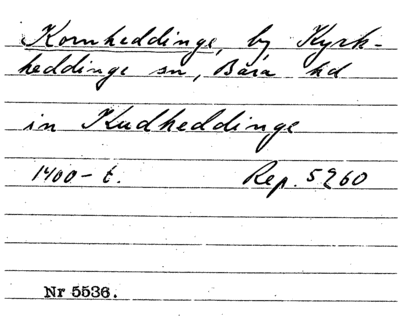 Kornheddinge, by Kyrk-
heddinge sn, Bara hd
in Kudheddinge
1400-t. Rep. 5260
Nr 5536.